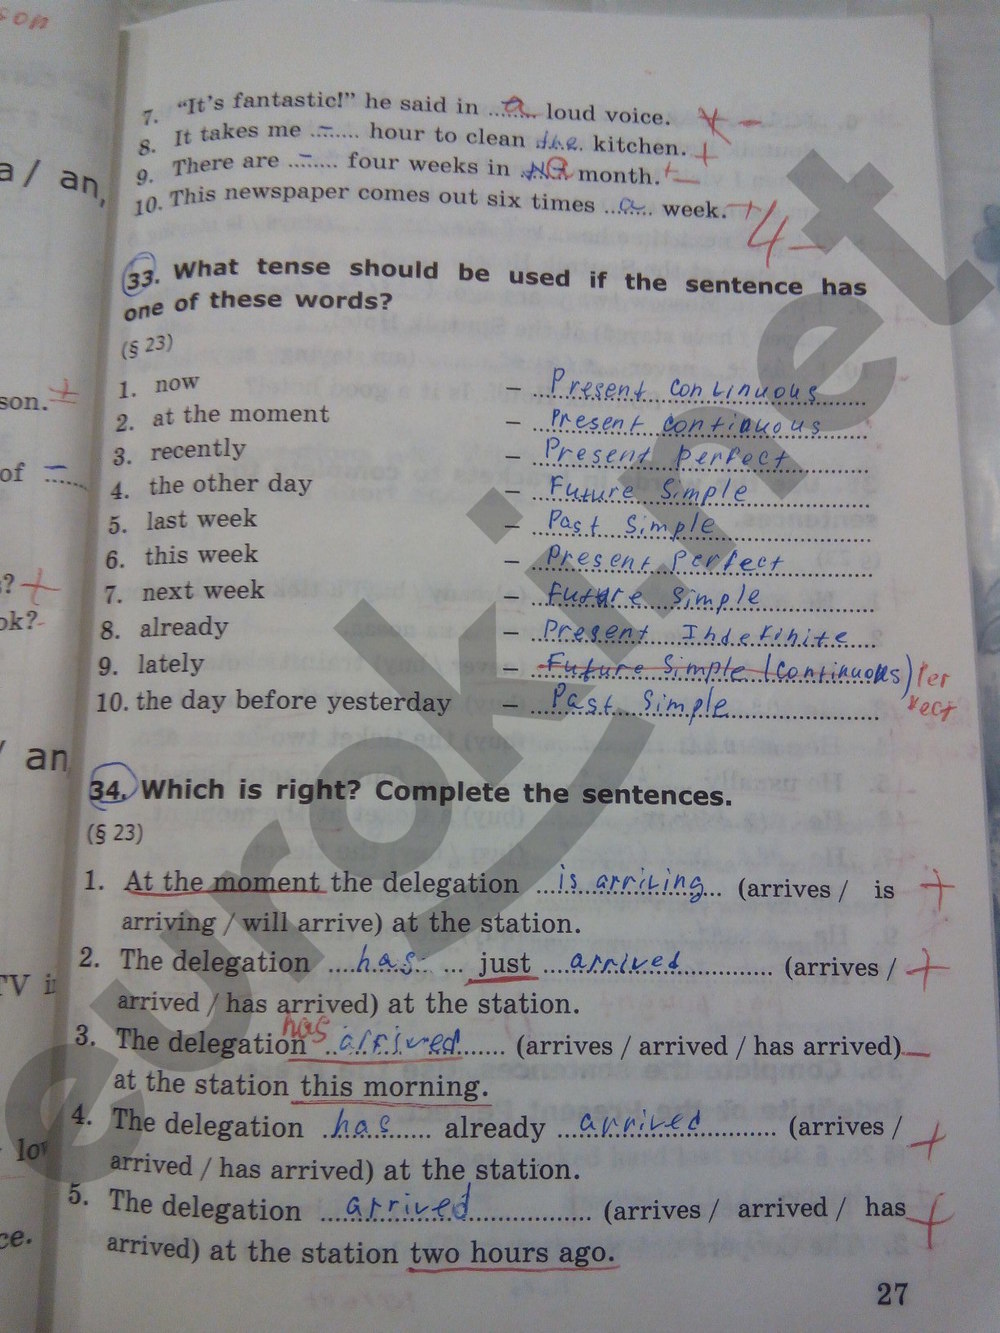 son
7. "It's fantastic!" he said in a loud voice. -
8. It takes me – hour to clean the kitchen. +
9. There are – four weeks in a month. + –
10. This newspaper comes out six times a week. +
4–
a / an,
33. What tense should be used if the sentence has
one of these words?
(§ 23)
1. now – Present continuous
son. +
2. at the moment – Present continuous
3. recently – Present perfect
of –
4. the other day – Future Simple
5. last week – Past Simple
6. this week – Present Perfect
? +
7. next week – Future Simple
ok? -
8. already – Present Indefinite
9. lately – Future Simple (continuous) Perfect
10. the day before yesterday – Past Simple
/ an
34. Which is right? Complete the sentences.
(§ 23)
1. At the moment the delegation is arriving (arrives / is +
arriving / will arrive) at the station.
2. The delegation has just arrived (arrives / +
TV i
arrived / has arrived) at the station.
3. The delegation has arrived (arrives / arrived / has arrived) –
at the station this morning.
4. The delegation has already arrived (arrives / +
lo
arrived / has arrived) at the station.
5. The delegation arrived (arrives / arrived / has +
ce.
arrived) at the station two hours ago.
27
euroki.net